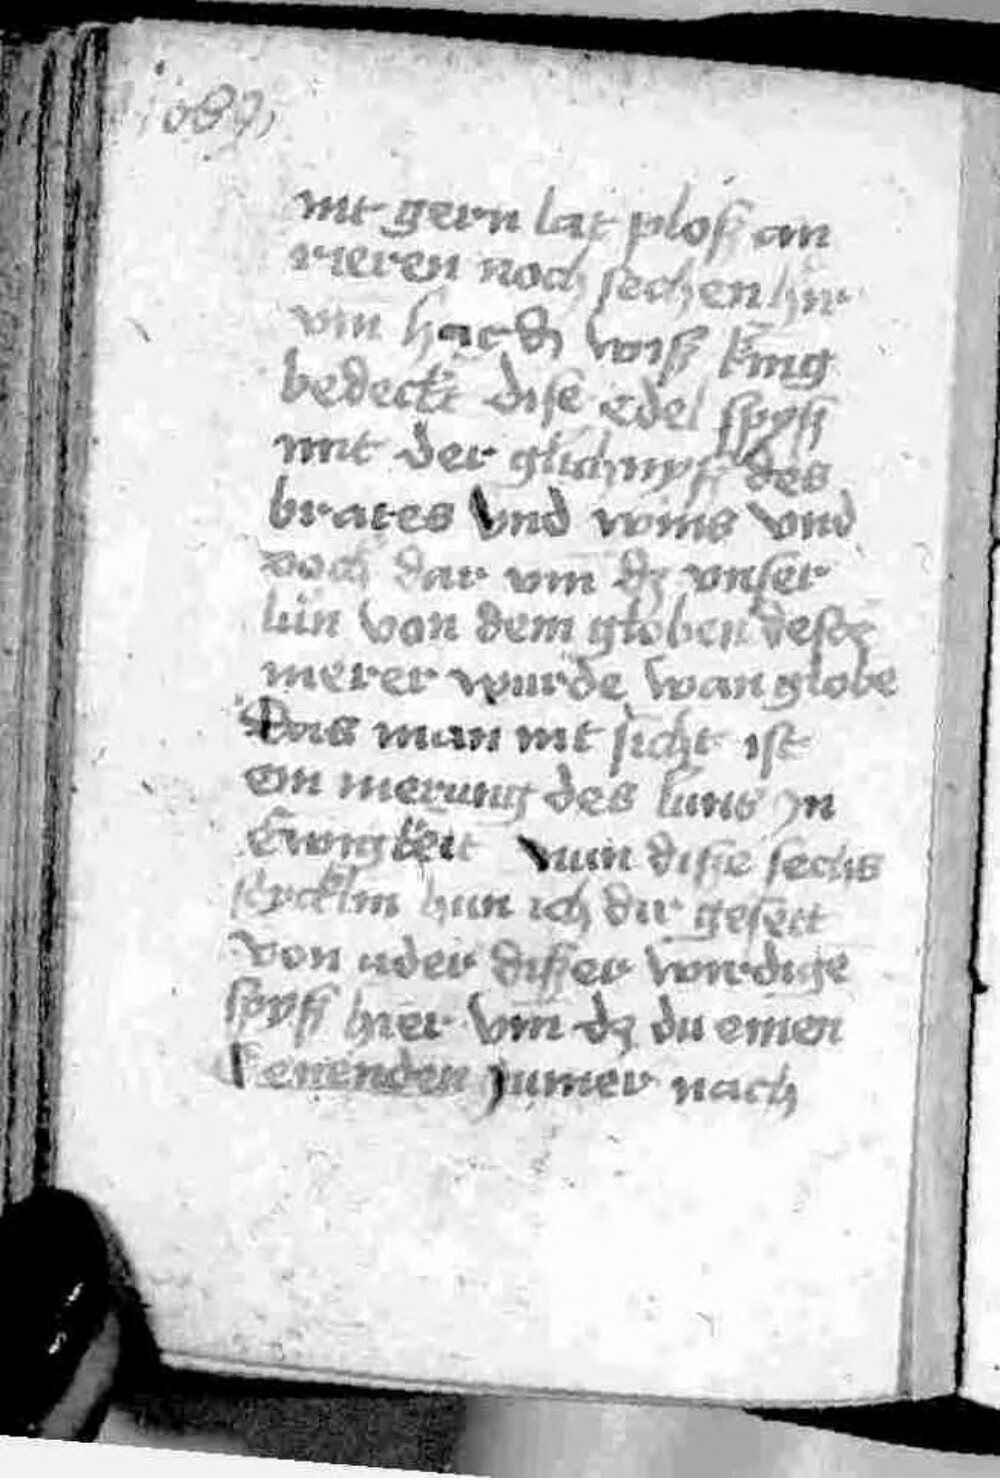 nit gern lat ploß an
rieren noch sechen hir
vm hat dz wiß king
bedeckt dise edel spyß
mit der glichnyß des
brates vnd wins vnd
och dar vm dz vnser
lün von dem globen dest
merer wurde wan globe
Das man nit sicht ist
ein merung des luns jn
Ewigkeit Nun disse sechs
stycklin hun ich dir geseit
von uder disser wirdige
spyß hier vm dz du einen
jumer nach